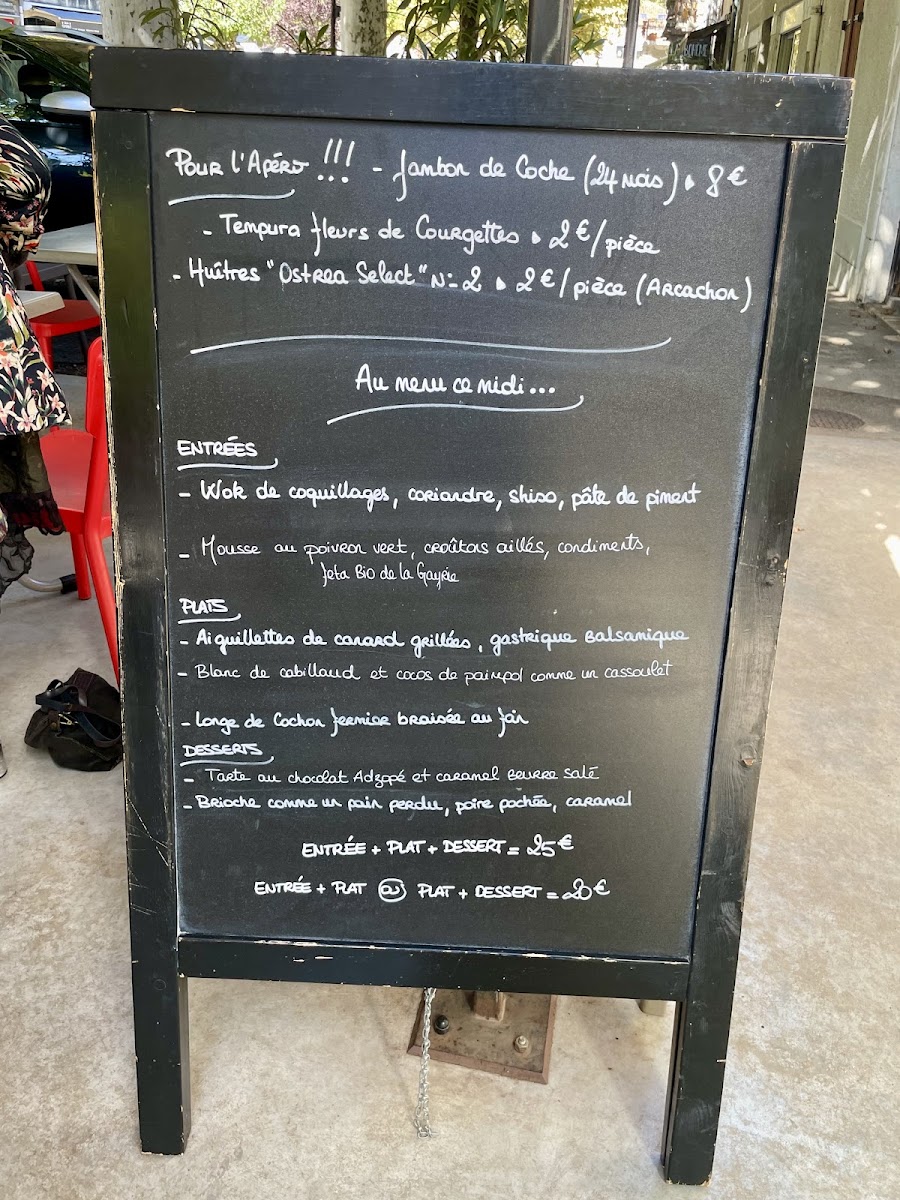 POUR L'APÉRO !!! - Jambon de Coche (24 mois) 8€
- Tempura fleurs de Courgettes 2€/pièce
- Huîtres "Ostrea Select" N-2 2€/pièce (ARCACHON)
Au menu ce midi...
ENTRÉES
- Wok de coquillages, coriandre, shiso, pâte de piment
- Mousse au poivron vert, croûtons aillés, condiments,
feta Bio de la Gayrie
PLATS
- Aiguillettes de canard grillées, gastrique Balsamique
- Blanc de cabillaud et cocos de paimpol comme un cassoulet
- Longe de Cochon fermier braisée au foin
DESSERTS
- Tarte au chocolat Adzopé et caramel Beurre salé
- Brioche comme un pain perdu, poire pochée, caramel
ENTRÉE + PLAT + DESSERT = 25€
ENTRÉE + PLAT OU PLAT + DESSERT = 20€